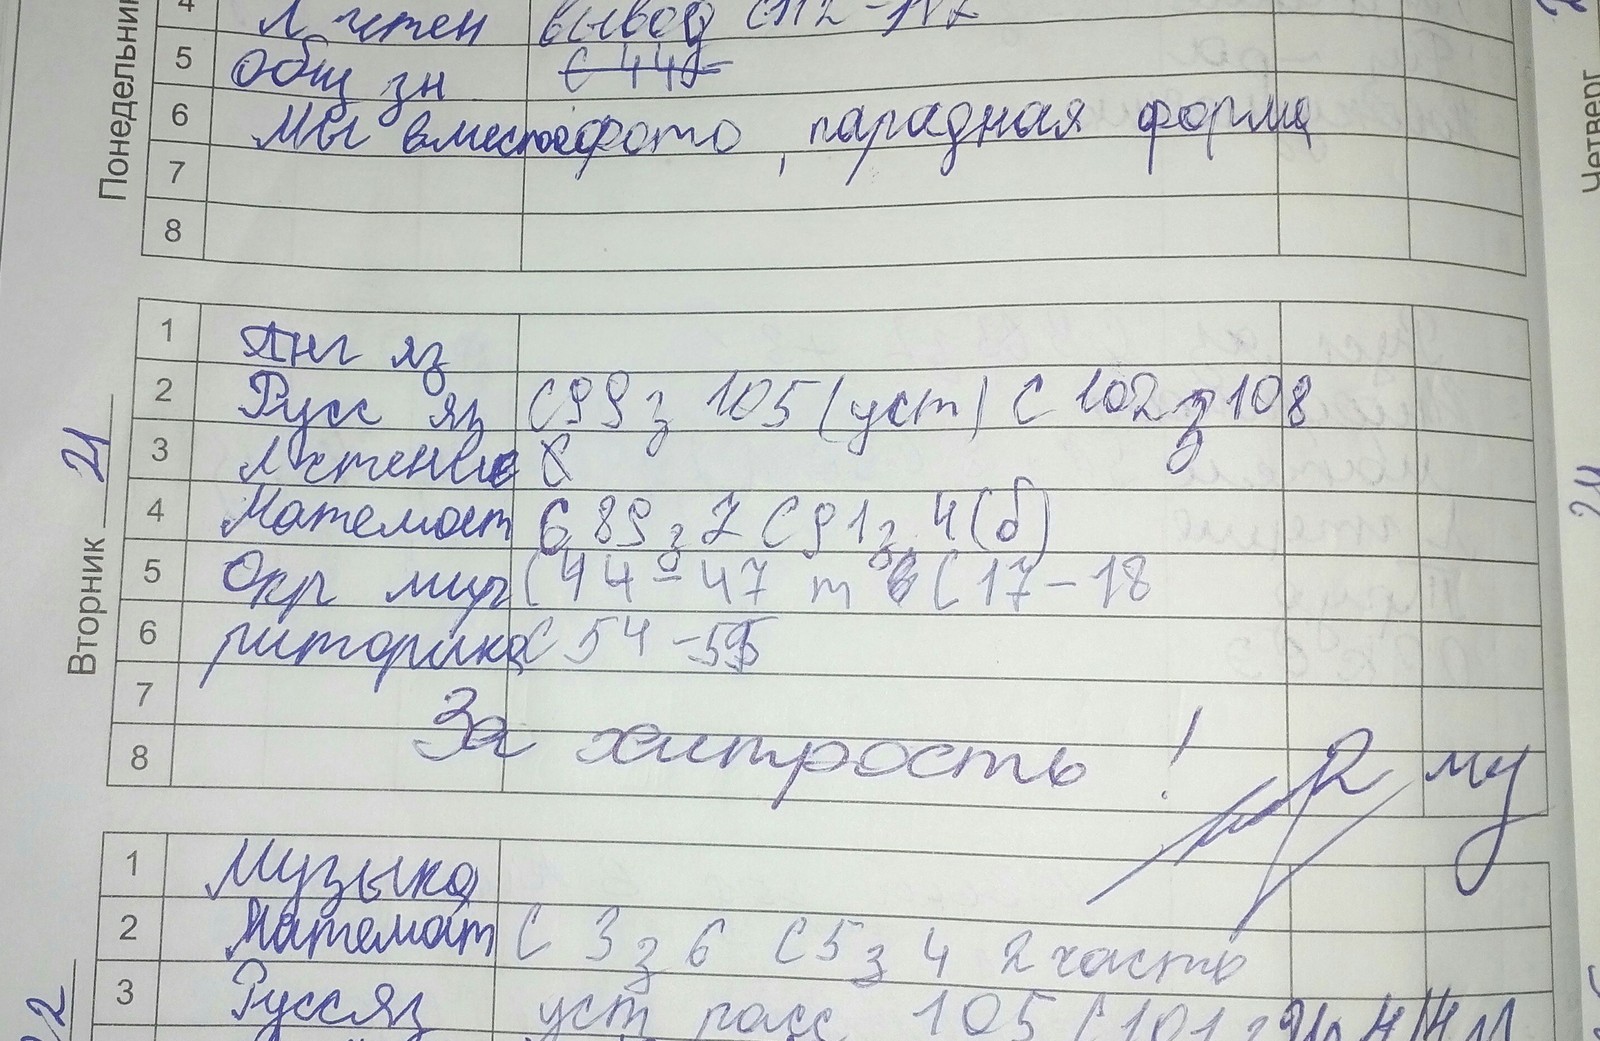 Понедельник
4 Л чтен вывод
5 Общ зн С 44
6 Мы вместе фото, парадная форма
7
8
Вторник 21
1 Анг яз
2 Русс яз С 99 з 105 (уст) С 102 з 108
3 Л чтение
4 Математ С 89 з 7 С 91 з 4 (б)
5 Окр мир С 44-47 т С 17-18
6 риторика С 54-55
7
8 За хитрость! 2 му
1 Музыка
2 Математ С 3 з 6 С 5 з 4 2 часть
3 Русс яз уст расс 105 С 101
22
Четверг